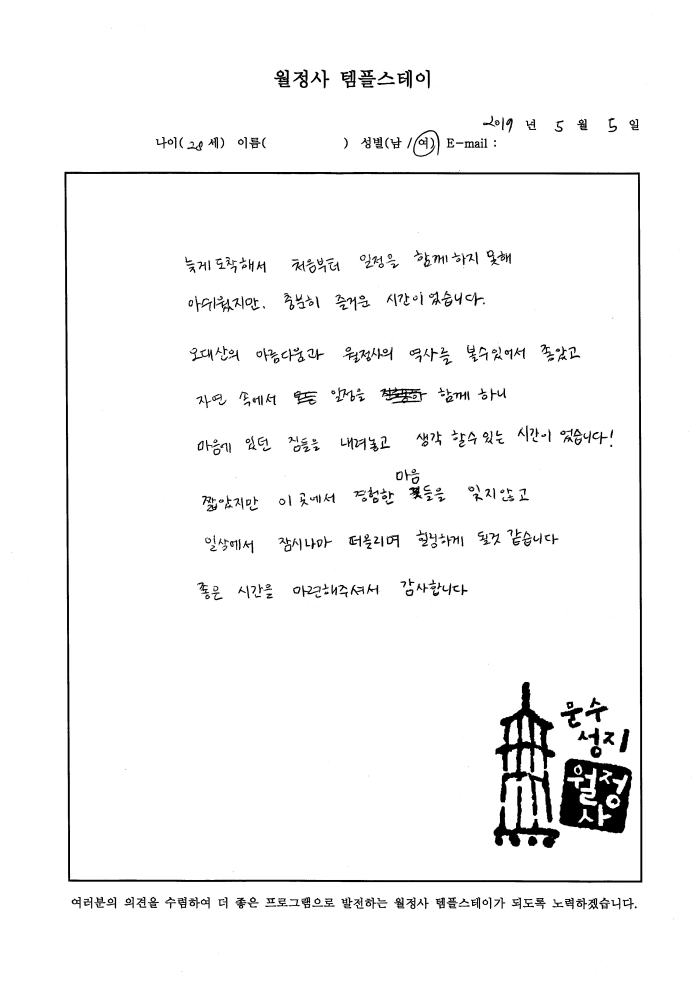 월정사 템플스테이
2019 년 5 월 5 일
나이( 28 세) 이름( ) 성별(남 / 여) E-mail :
늦게 도착해서 처음부터 일정을 함께 하지 못해
아쉬웠지만, 충분히 즐거운 시간이었습니다.
오대산의 아름다움과 월정사의 역사를 볼수있어서 좋았고
자연 속에서 일정을 함께 하니
마음에 있던 짐들을 내려놓고 생각 할수 있는 시간이 었습니다!
짧았지만 이 곳에서 경험한 마음들을 잊지않고
일상에서 잠시나마 떠올리며 힐링하게 될것 같습니다
좋은 시간을 마련해주셔서 감사합니다
문수
성지
월정
사
여러분의 의견을 수렴하여 더 좋은 프로그램으로 발전하는 월정사 템플스테이가 되도록 노력하겠습니다.